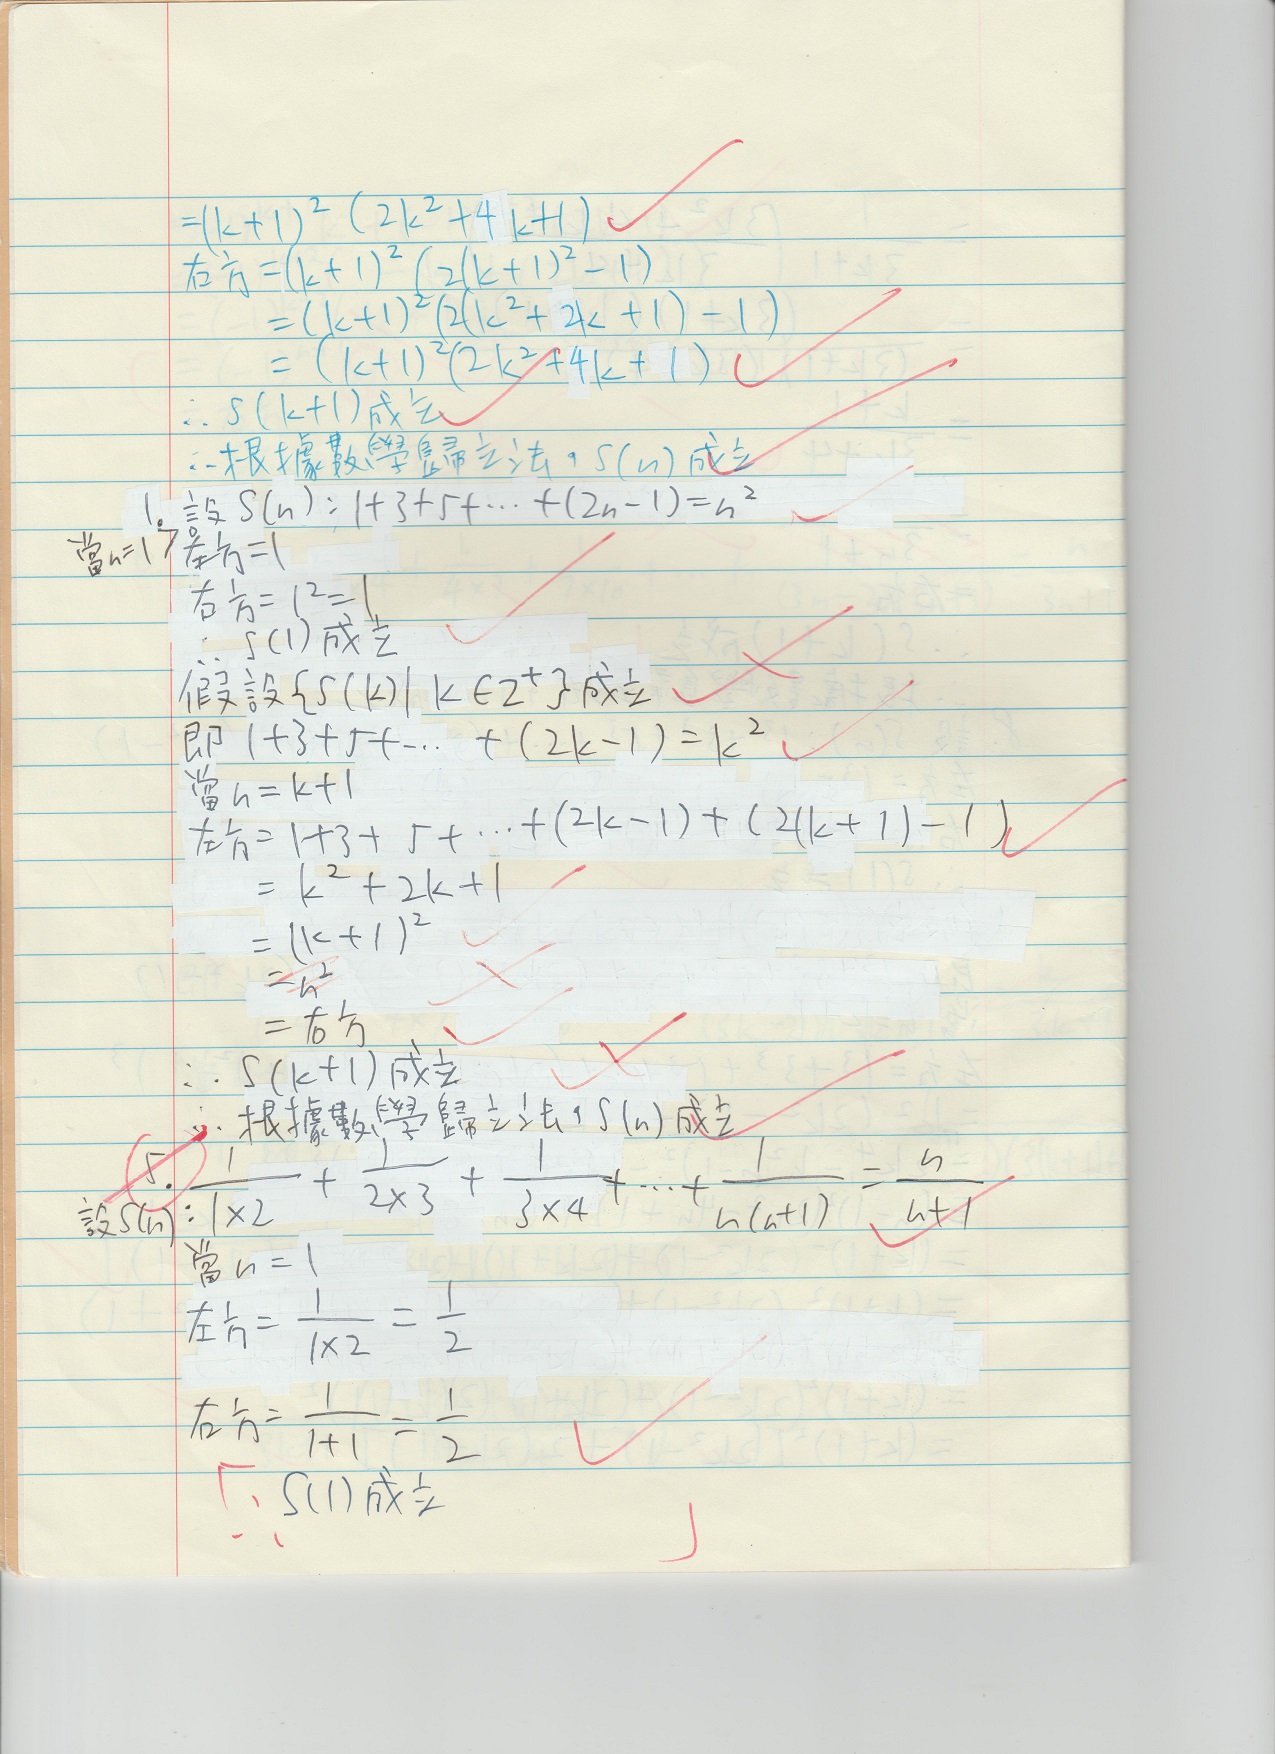 =(k+1)² (2k²+4k+1)
右方=(k+1)² (2(k+1)²-1)
=(k+1)²(2(k²+2k+1)-1)
=(k+1)²(2k²+4k+1)
∴S(k+1)成立
∴根據數學歸立法,S(n)成立
1. 設S(n):1+3+5+…+(2n-1)=n²
當n=1, 左方=1
右方=1²=1
∴S(1)成立
假設{S(k)|k∈Z⁺}成立
即1+3+5+… +(2k-1)=k²
當n=k+1
左方=1+3+5+…+(2k-1)+(2(k+1)-1)
=k²+2k+1
=(k+1)²
=n²
=右方
∴S(k+1)成立
∴根據數學歸立法,S(n)成立
5. 設S(n):1/(1×2)+1/(2×3)+1/(3×4)+…+1/(n(n+1))=n/(n+1)
當n=1
左方=1/(1×2)=1/2
右方=1/(1+1)=1/2
∴S(1)成立